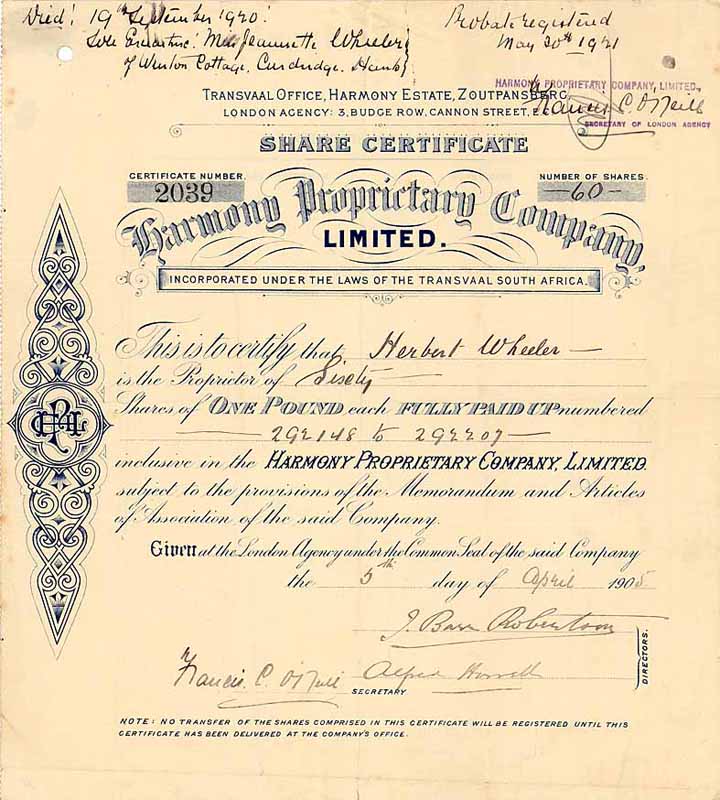 Died: 19th September 1920.
Sole Executrix: Mrs Jeannette Wheeler
of Winton Cottage, Curdridge. Hants
Probate registered
May 30th 1921
HARMONY PROPRIETARY COMPANY, LIMITED.
Francis C. O'Neill
SECRETARY OF LONDON AGENCY
TRANSVAAL OFFICE, HARMONY ESTATE, ZOUTPANSBERG.
LONDON AGENCY: 3, BUDGE ROW, CANNON STREET, E.C.
SHARE CERTIFICATE
CERTIFICATE NUMBER.
2039
NUMBER OF SHARES.
—60—
Harmony Proprietary Company,
LIMITED.
INCORPORATED UNDER THE LAWS OF THE TRANSVAAL SOUTH AFRICA.
This is to certify that Herbert Wheeler —
is the Proprietor of Sixty
Shares of ONE POUND each FULLY PAID UP numbered
— 292148 to 292207 —
inclusive in the HARMONY PROPRIETARY COMPANY, LIMITED.
subject to the provisions of the Memorandum and Articles
of Association of the said Company.
Given at the London Agency under the Common Seal of the said Company
the 5th day of April 1905
J. Barr Robertson
Francis. C. O'Neill
Alfred
SECRETARY
DIRECTORS.
NOTE: NO TRANSFER OF THE SHARES COMPRISED IN THIS CERTIFICATE WILL BE REGISTERED UNTIL THIS
CERTIFICATE HAS BEEN DELIVERED AT THE COMPANY'S OFFICE.